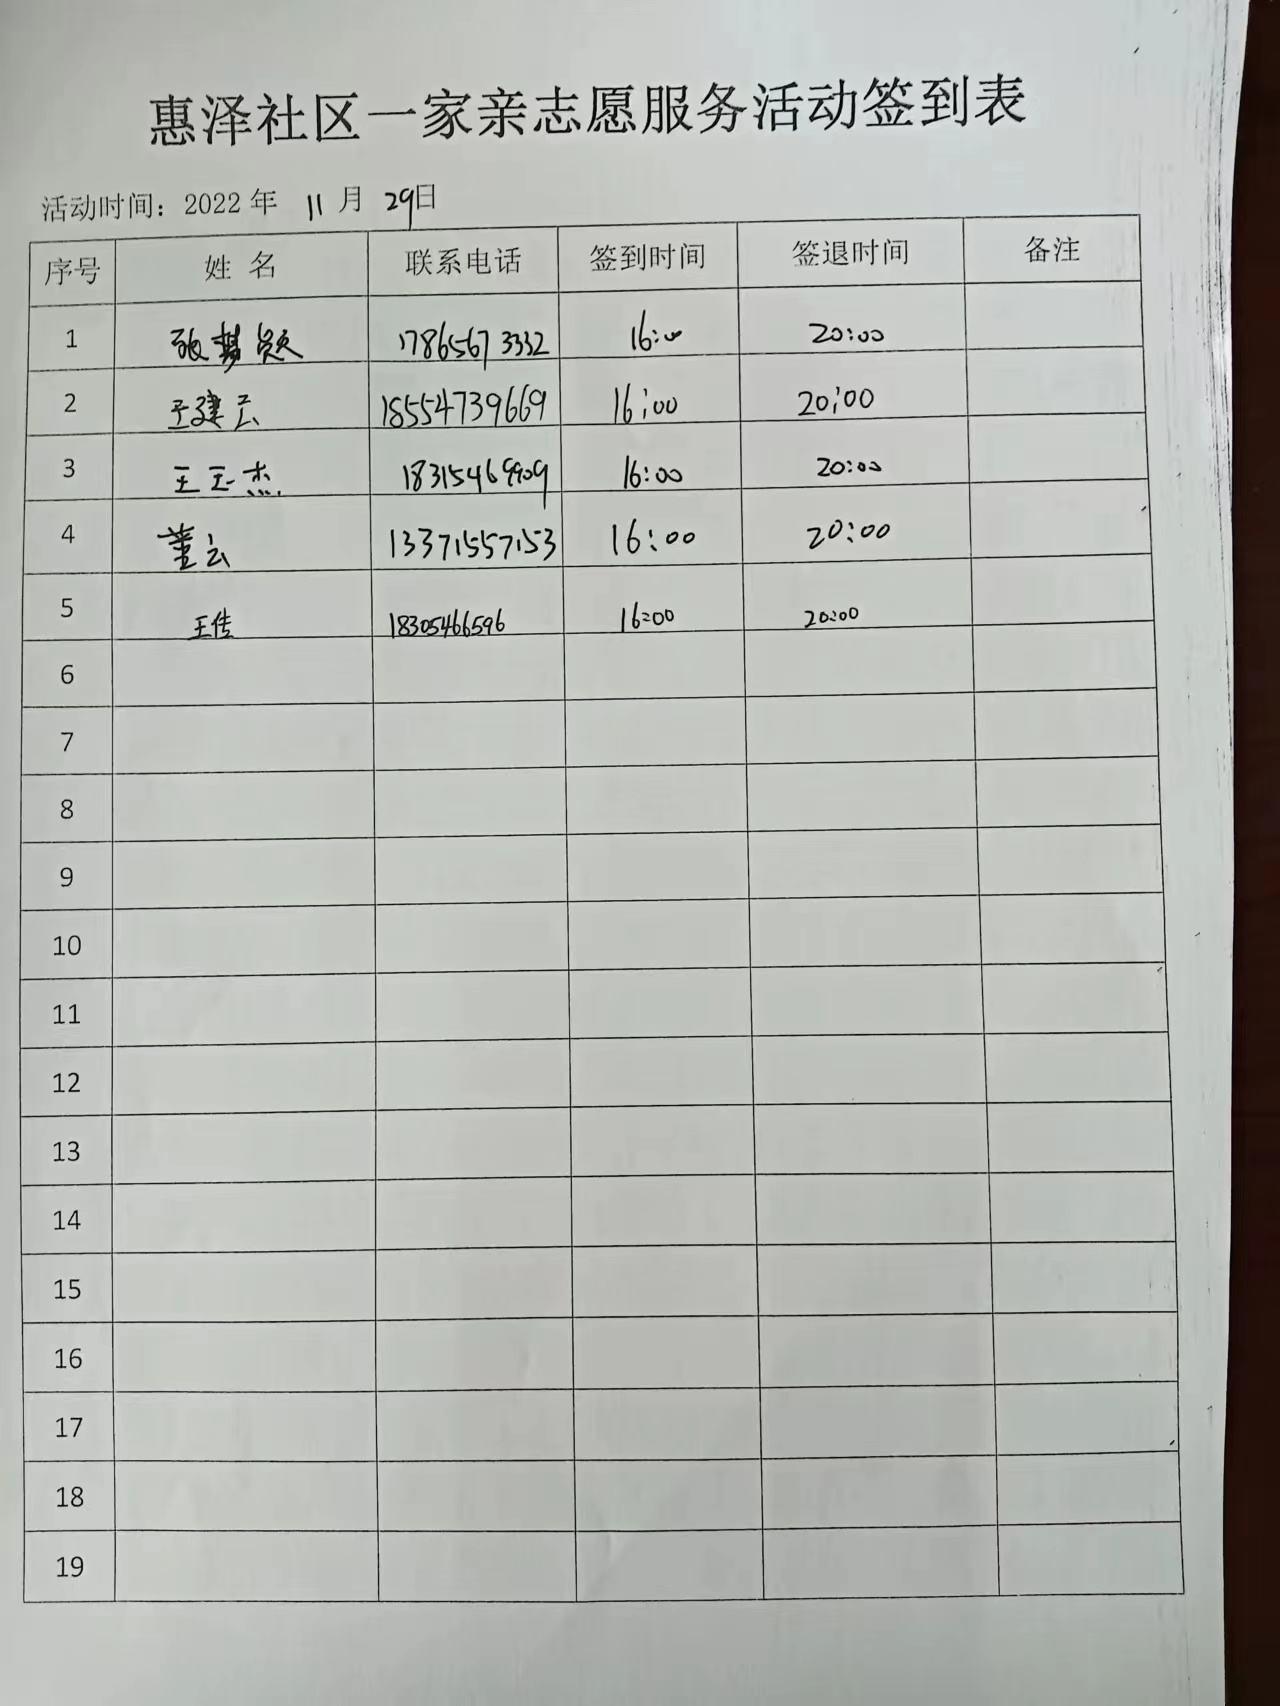 惠泽社区一家亲志愿服务活动签到表
活动时间：2022年 11月 29日
序号 姓名 联系电话 签到时间 签退时间 备注
1 17865673332 16:00 20:00
2 于建云 18554739669 16:00 20:00
3 王玉杰 16:00 20:00
4 董云 13371557153 16:00 20:00
5 王传 18305466596 16:00 20:00
6
7
8
9
10
11
12
13
14
15
16
17
18
19